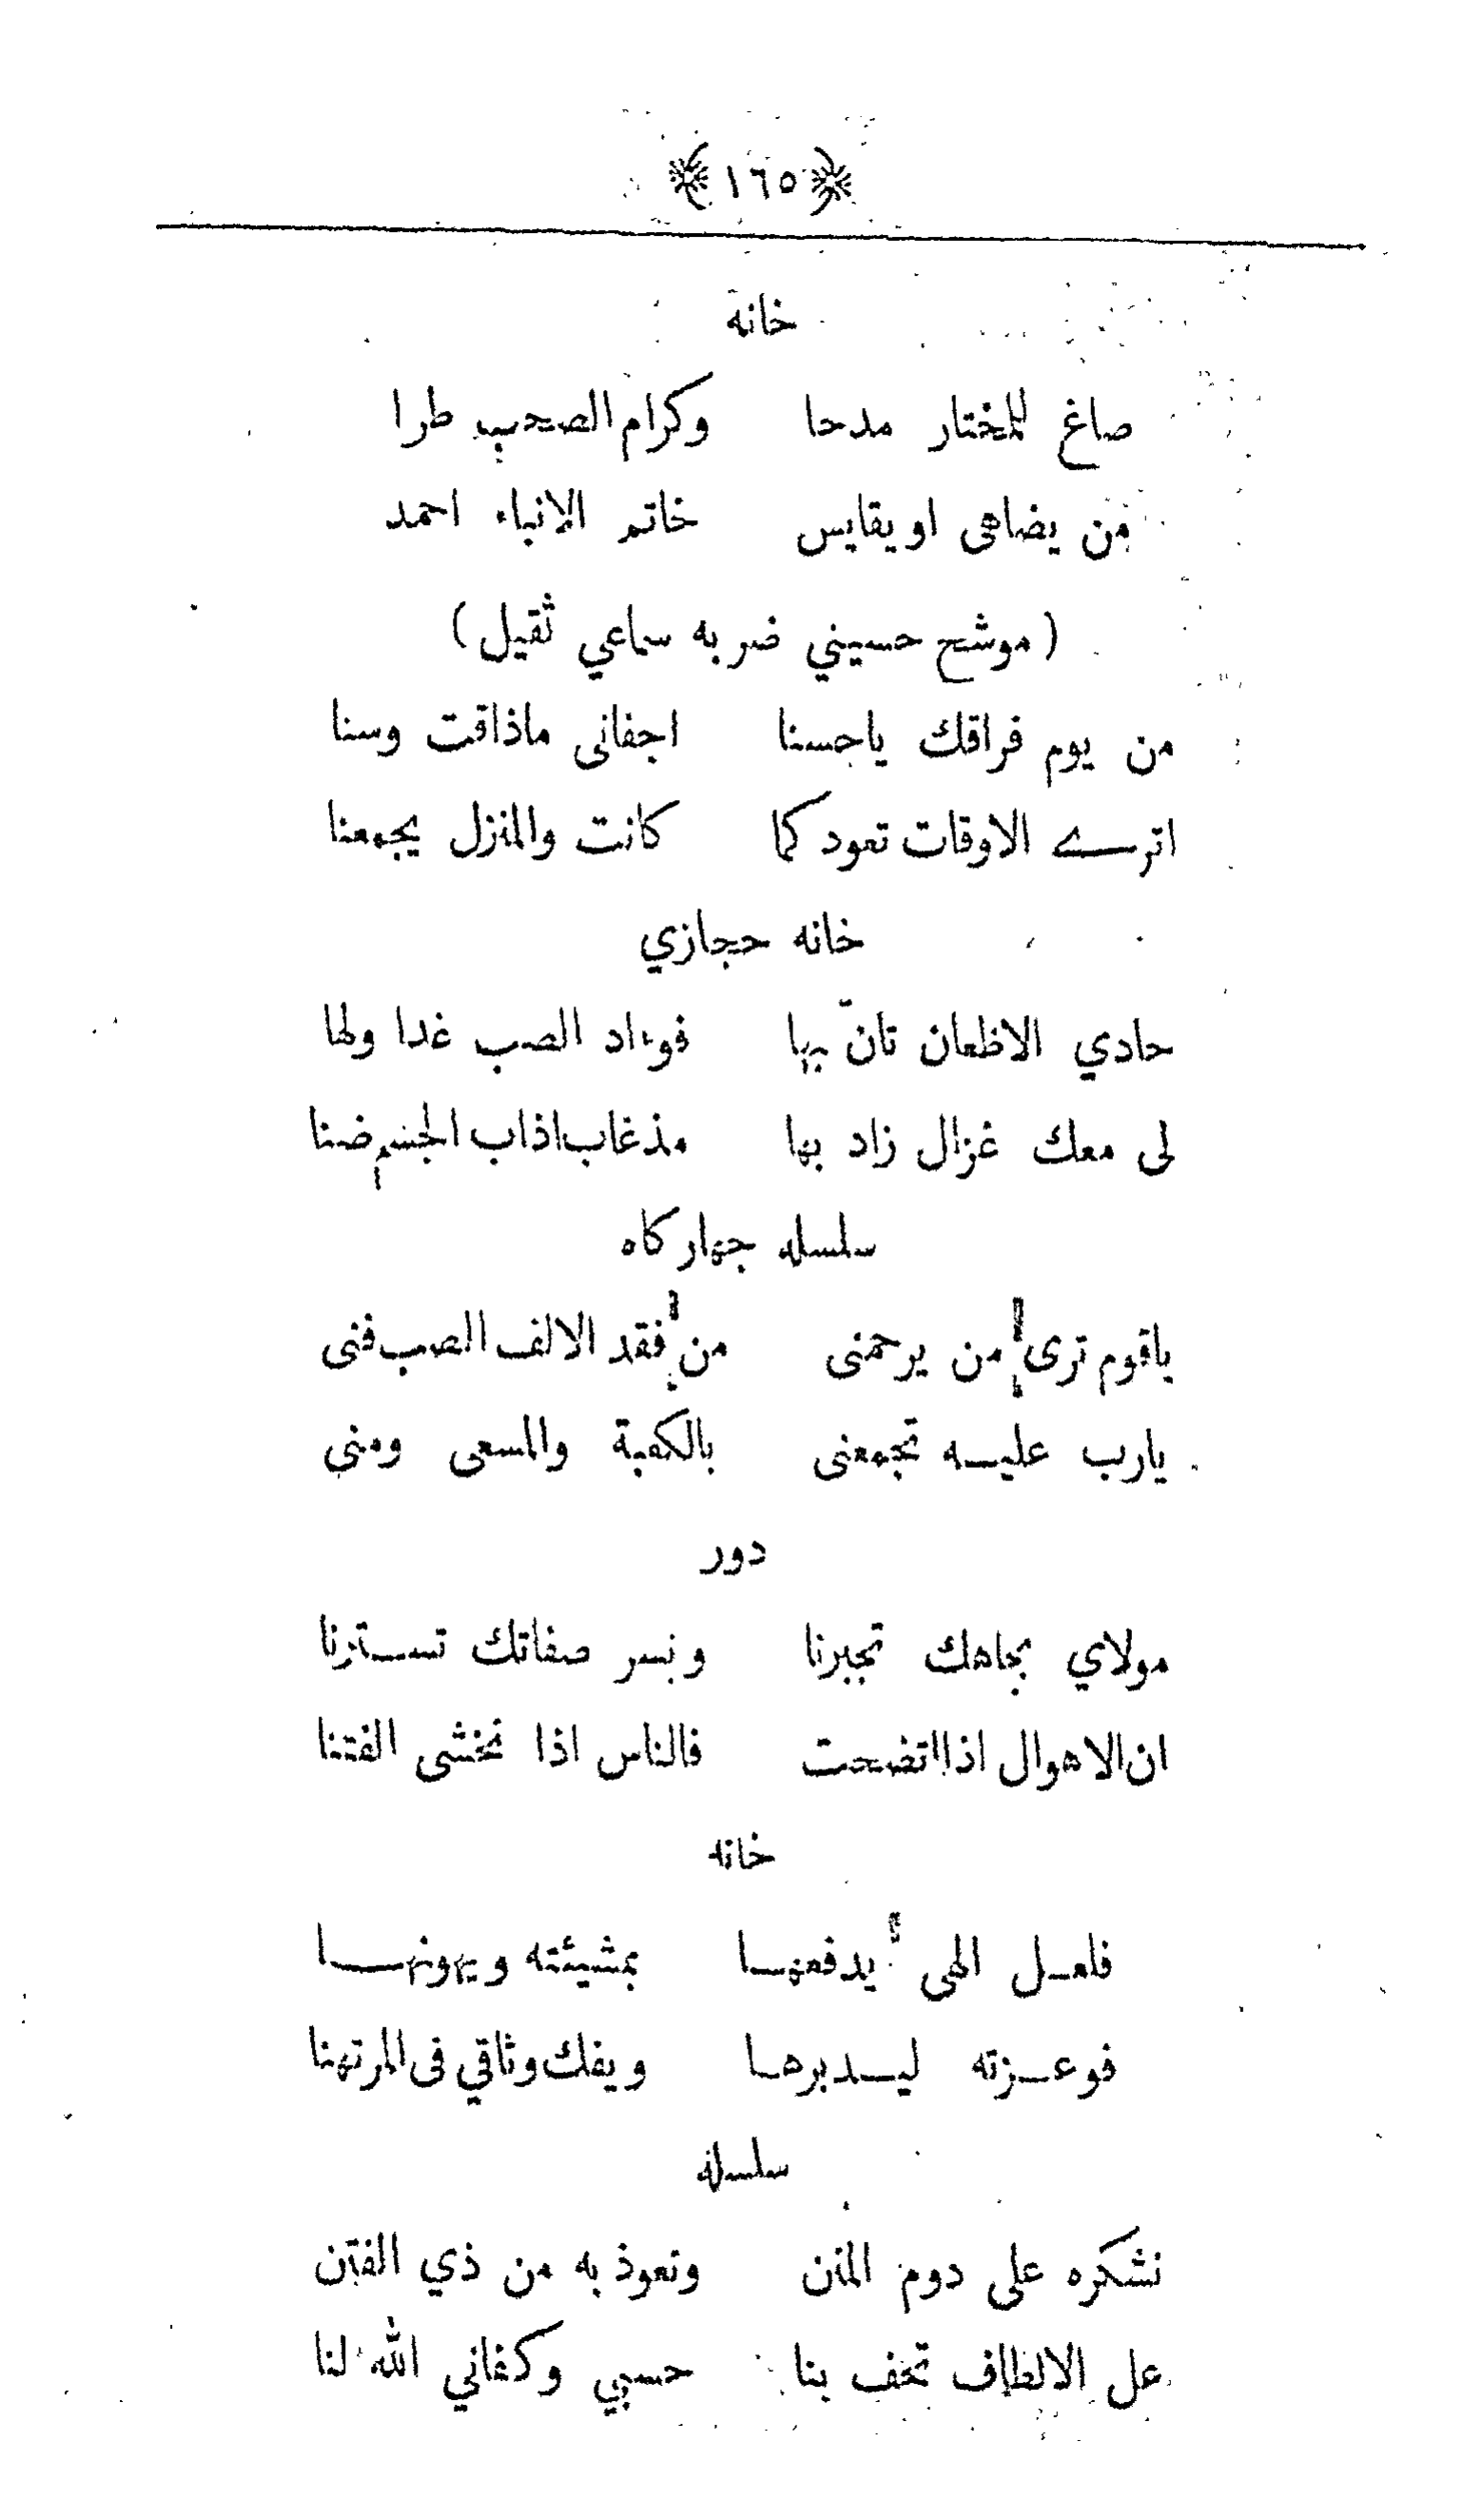 ﴿ ١٦٥ ﴾
خانه
صاغ للمختار مدحا وكرام الصحب طرا
من يضاهى او يقايس خاتم الانباء احمد
(موشح حسيني ضربه سماعي ثقيل)
من يوم فراقك ياحسنا اجفانى ماذاقت وسنا
اترے الاوقات تعود كما كانت والمنزل يجمعنا
خانه حجازي
حادي الاظعان تان بها فوءاد الصب غدا ولها
لى معك غزال زاد بها مذ غاب اذاب الجسم ضنا
سلسله جهار كاه
ياقوم ترى من يرحمنى من فقد الالف الصب فنى
يارب عليه تجمعنى بالكعبة والمسعى ومنى
دور
مولاي بجاهك تجبرنا وبسر صفاتك تسترنا
ان الاهوال اذا اتضحت فالناس اذا تخشى الفتنا
خانه
فلعل الهى يدفعها بمشيئته ويهونها
فوعزته ليدبرها ويفك وثاقي فى المرتهنا
سلسله
نشكره على دوم المنن ونعوذ به من ذي الفتن
عل الالطاف تحف بنا حسبي وكفاني الله لنا